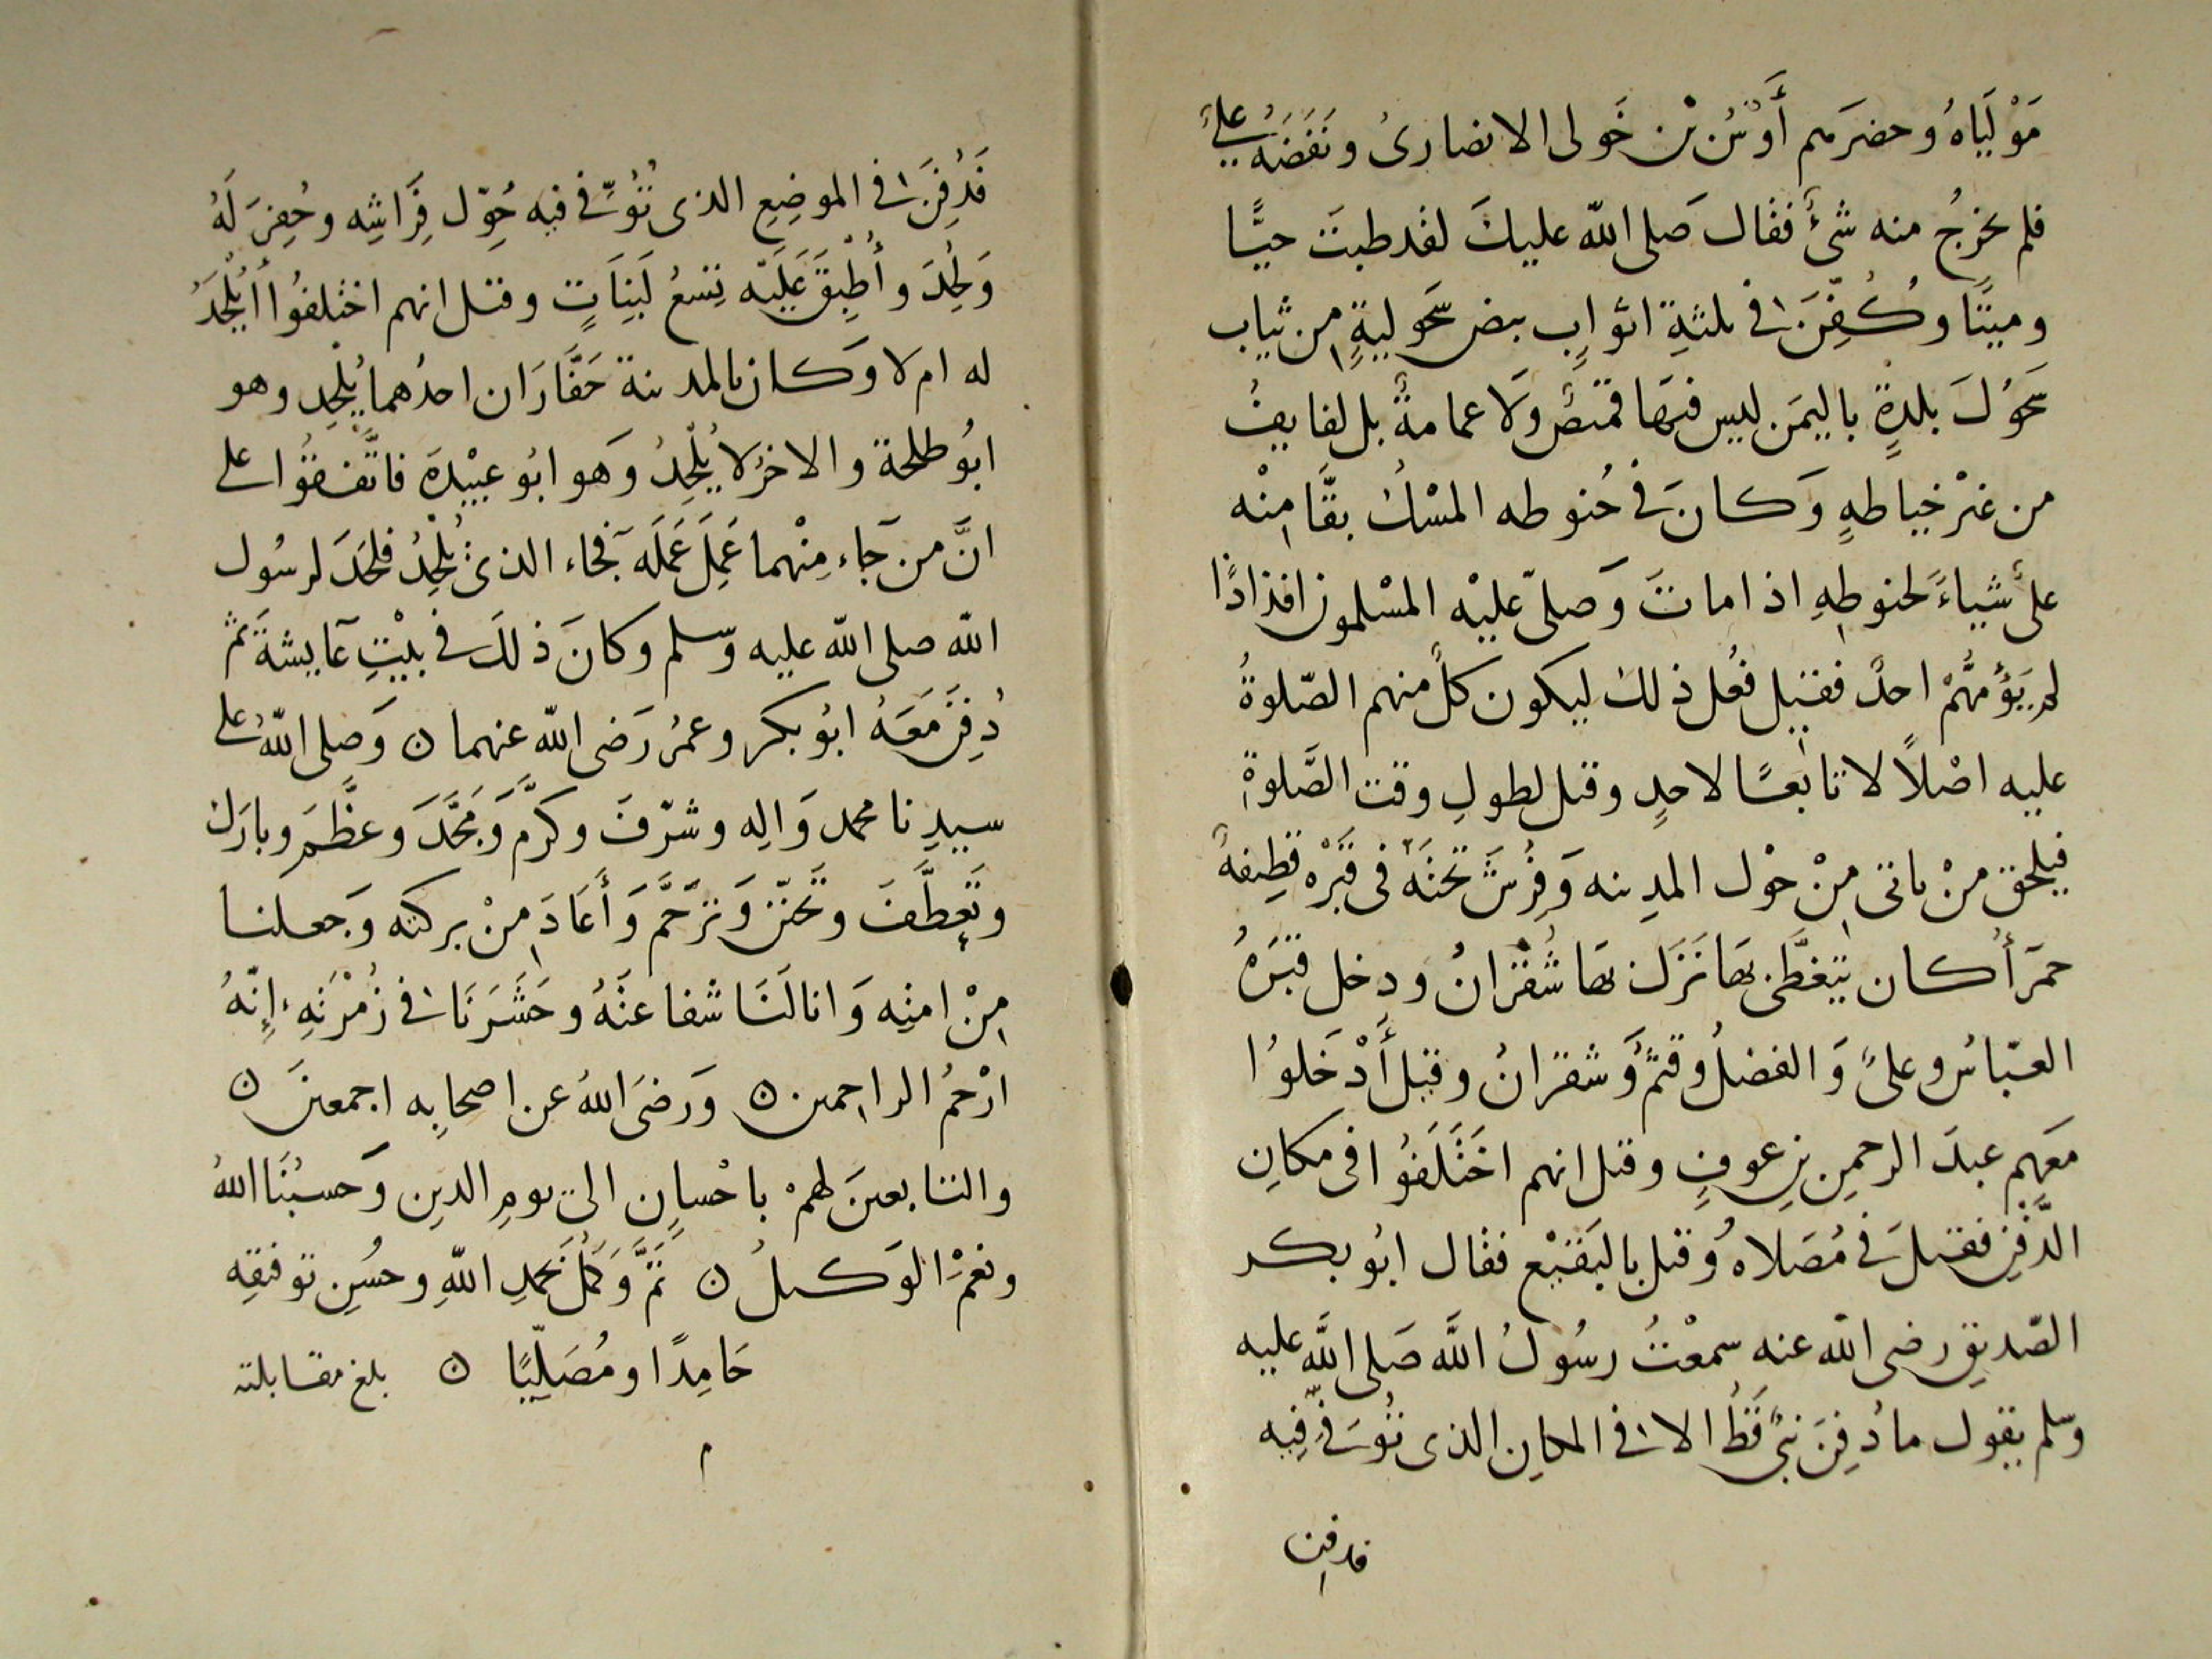 مَوْلَيَاهُ وحضرَهم أَوْسُ بْن خَولى الانصارىُ ونَفَضَهُ علىٌّ
فلم يخرجُ منه شئٌ فقال صَلى اللّه عليكَ لقد طبتَ حيًّا
وميتًا وكُفِّنَ فى ثلثةِ اثوابٍ بيض سَحَوليةٍ من ثياب
سَحَوُلَ بلدةٍ باليمَن ليس فيهَا قميصٌ وَلا عمامةٌ بل لفايفُ
من غيْر خياطهٍ وَكانَ فى حُنوطه المسْكُ بقَّا مِنْه
علىٌ شياءً لحنوطِهِ اذا ماتَ وَصلىّ عليْه المسْلمون افذاذًا
لم يَؤُمَّهُمْ احدٌ فقيل فُعل ذلك ليكون كلٌ منهم الصّلوةُ
عليه اصْلاً لا تابعًا لاحدٍ وقيل لطولِ وقت الصَّلوةِ
فيلحق منْ ياتى مِنْ حوْل المدِينه وَفُرِشَ تحتَهُ فى قَبْرِه قطِيفةٌ
حمرَأُ كان يتغطَّى بهَا نَزَلَ بهَا شُقْرَانُ ودخل قبَرَهُ
العبّاسُ وعلىٌ وَالفضلُ وقثمُ وَشقرانُ وقيل أَدْخَلوُا
معَهم عبدَ الرحمِن بنِ عوفٍ وقيل انهم اخَتَلَفوُا فى مكانِ
الدَّفْنِ فقيلَ فى مُصَلاهُ وقيل بالبَقيْع فقال ابوُ بكر
الصّديقِ رضى اللّه عنه سمعْتُ رسُولَ اللَّه صَلى اللَّه عليه
وسلم يقول ما دُفِنَ نبىٌ قَطُ الا فى المكانِ الذى تُوُفىَ فيِه
فدفِن
فَدُفِنَ فى الموضِعِ الذى تُوُفِّىَ فيه حُوِّل فِرَاشِه وحُفِرَ لَهُ
وَلُحِدَ وأُطْبِقَ عَليَه تِسْعُ لَبِنَاتٍ وقيل انهم اختلفُوا أَيُلْحَدُ
له ام لا وَكان بالمدينة حَفَّارَان احدُهما يُلْحِد وهو
ابوُ طلحة والاخرُ لا يُلْحِدُ وَهو ابوُ عبيْدةَ فاتَّفقوُا على
انَّ من جَاء مِنْهما عَمِلَ عَمَلَه فجاء الذى يُلْحِدُ فلحَدَ لرسُول
اللّه صلى اللّه عليه وسلم وكانَ ذلكَ فى بيْتِ عَايشةَ ثم
دُفِنَ مَعَهُ ابوُ بكر وعمرُ رَضى اللّه عنهما ن وَصلى اللّهُ على
سيدِنا محمد وَالِه وشرّفَ وكرَّم وَمَجَّدَ وعظَّمَ وبارَك
وتَعطَّفَ وتَحنّنَ وَترَحَّم وَأَعَادَ مِنْ بركته وَجعلنا
مِنْ امتِه وَانالَنَا شفاعَتَهُ وحَشَرَنَا فى زُمْرَتهِ إِنّهُ
ارْحمُ الراحمين ن وَرَضىَ اللهُ عن اصحابِه اجمعينَ ن
والتابعينَ لهمْ باحْسانٍ الى يومِ الدينِ وَحسبُنَا اللهُ
ونعمَْ الوَكيلُ ن تَمَّ وَكَمُلَ بحَمدِ اللّهِ وحُسْنِ توفيقِه
حَامِدًا ومُصَلِّيًا ن بلغ مقابلته
م